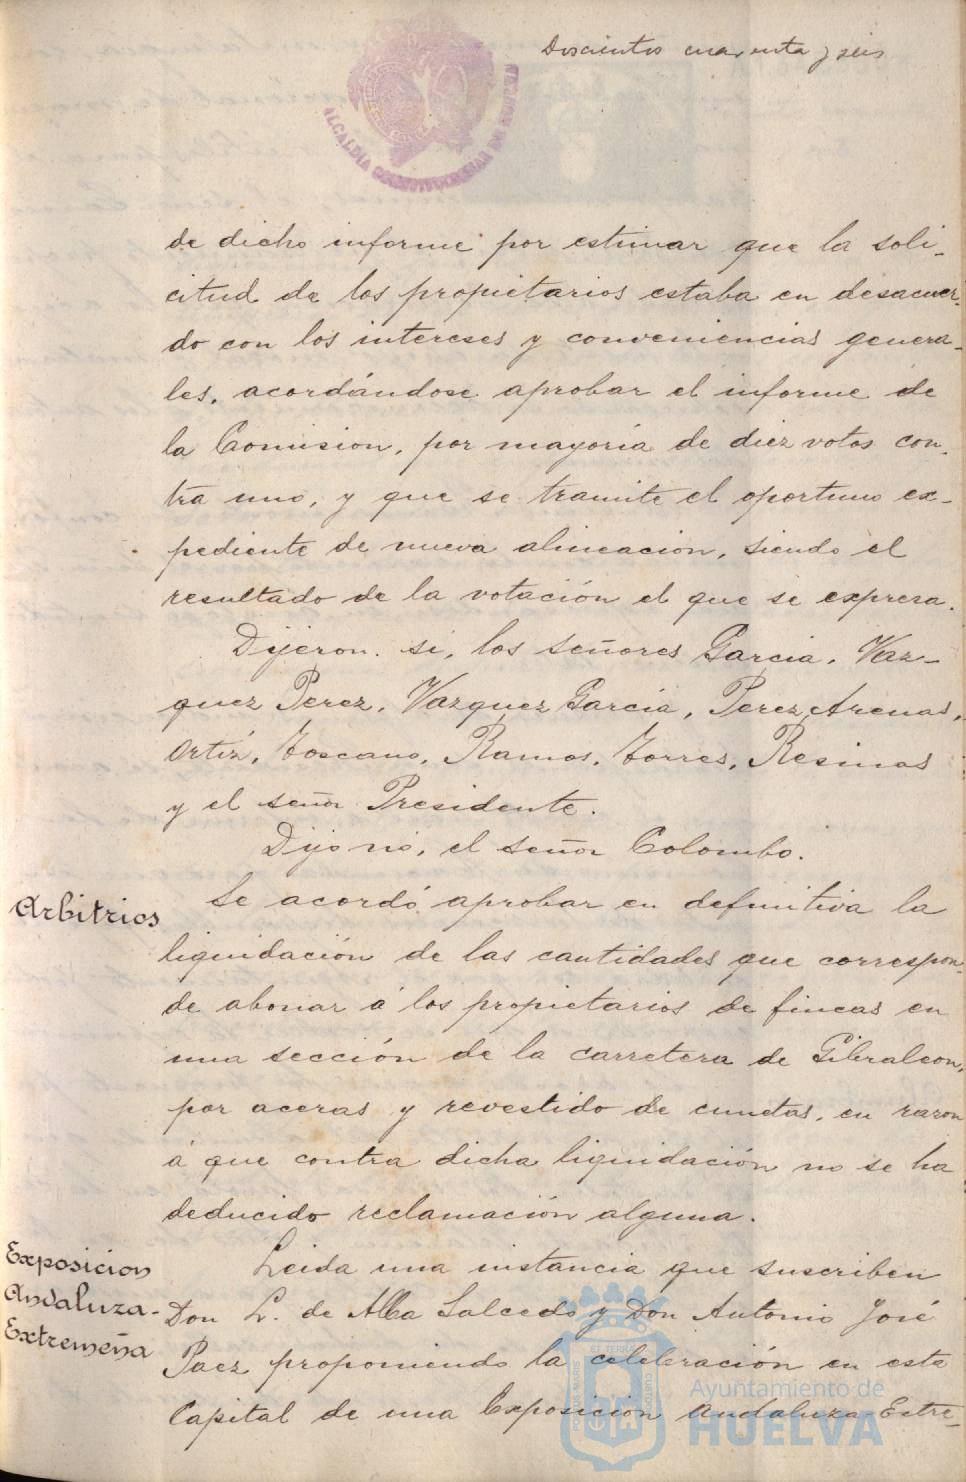 Doscientos cuarenta y seis
ALCALDIA CONSTITUCIONAL DE HUELVA
de dicho informe por estimar que la soli-
citud de los propietarios estaba en desacuer-
do con los intereses y conveniencias genera-
les, acordándose aprobar el informe de
la Comision, por mayoría de diez votos con-
tra uno, y que se tramite el oportuno ex-
pediente de nueva alineacion, siendo el
resultado de la votación el que se expresa.
Dijeron si, los señores Garcia, Vaz-
quez Perez, Vazquez García, Perez Arenas,
Ortiz, Toscano, Ramos, Torres, Resinas
y el señor Presidente.
Dijo no, el señor Colombo.
Arbitrios
Se acordó aprobar en definitiva la
liquidación de las cantidades que correspon-
de abonar á los propietarios de fincas en
una sección de la carretera de Gibraleon,
por aceras y revestido de cunetas, en razon
á que contra dicha liquidación no se ha
deducido reclamación alguna.
Exposicion
Andaluza-
Extremeña
Leida una instancia que suscriben
Don L. de Alba Salcedo y Don Antonio José
Paez proponiendo la celebración en esta
Capital de una Exposición Andaluza-Estre-
Ayuntamiento de
HUELVA